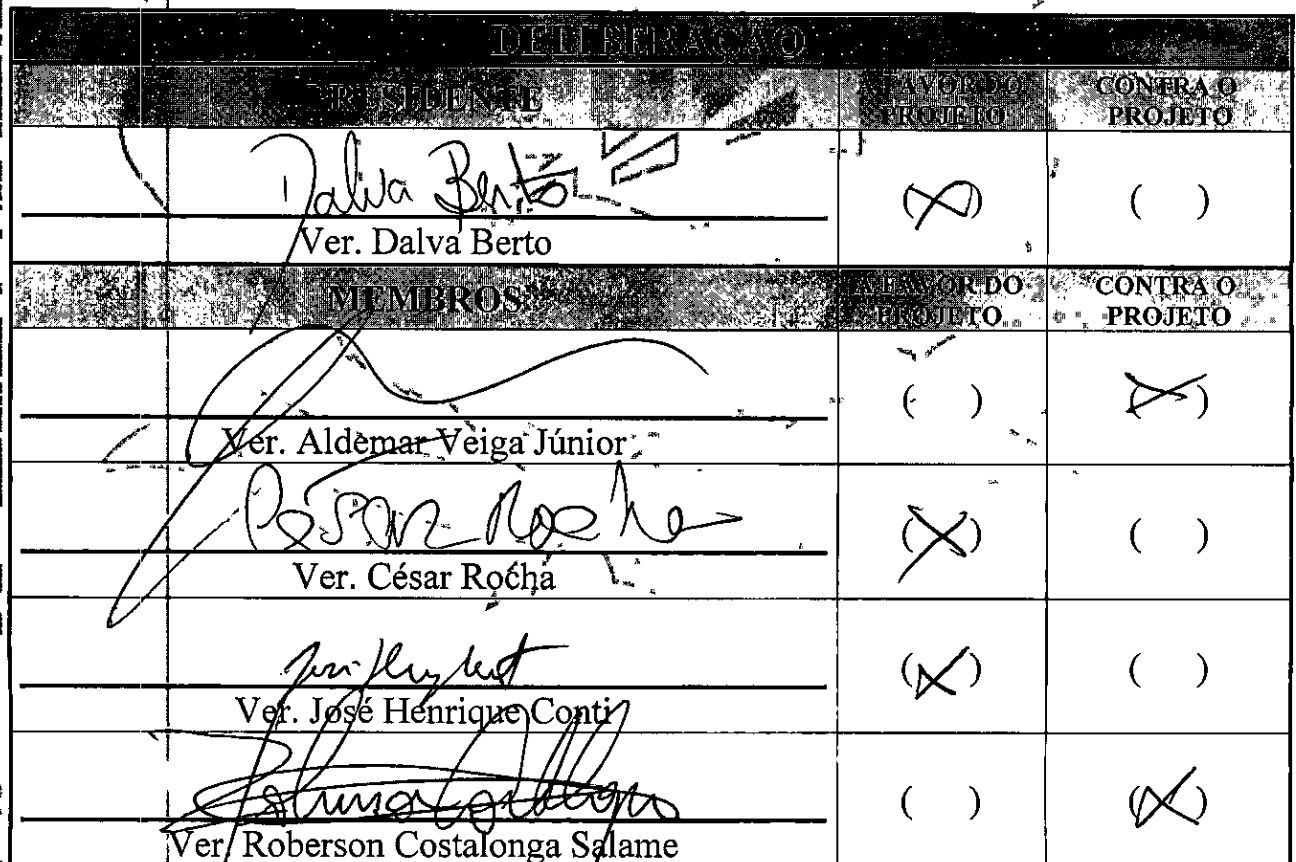 DELIBERAÇÃO
PRESIDENTE A FAVOR DO PROJETO CONTRA O PROJETO
Dalva Berto (X) ( )
Ver. Dalva Berto
MEMBROS A FAVOR DO PROJETO CONTRA O PROJETO
( ) (X)
Ver. Aldemar Veiga Júnior
César Rocha (X) ( )
Ver. César Rocha
(X) ( )
Ver. José Henrique Conti
( ) (X)
Ver. Roberson Costalonga Salame